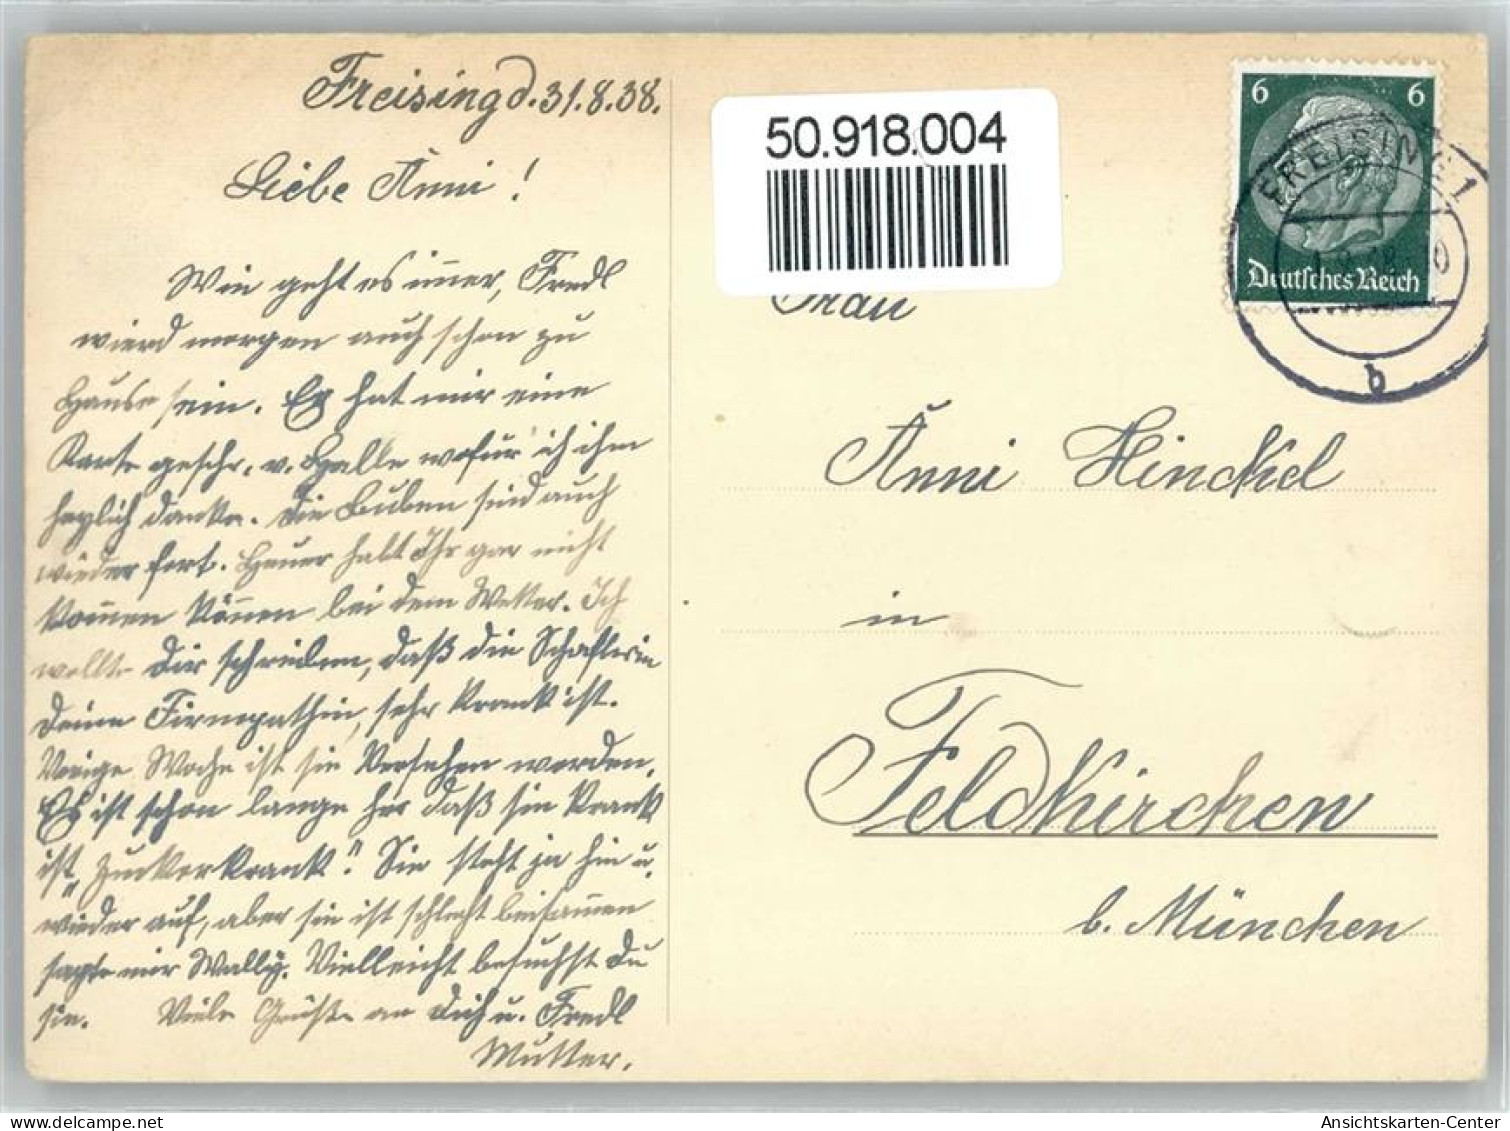 Freising d. 31.8.38.
Liebe Anni!
Wie geht es immer, Fredl
wierd morgen auch schon zu
Hause sein. Er hat mir eine
Karte geschr. v. Halle wofür ich ihm
herzlich danke. Die Buben sind auch
wieder fort. Heuer habt Ihr gar nicht
kommen können bei dem Wetter. Ich
wollte Dir schreiben, daß die
Deine sehr krank ist.
Vorige Woche ist sie Versehen worden.
Es ist schon lange her daß sie krank
ist "zuckerkrank". Sie steht ja hin u.
wieder auf, aber sie ist schlecht beisammen
sagte mir Wally. Vielleicht besuchst Du
sie. Viele Grüße an Dich u. Fredl
Mutter.
50.918.004
Frau
Anni Hinckel
in
Feldkirchen
b. München
6 6
Deutsches Reich
FREISING 1
b
delcampe.net
Ansichtskarten-Center